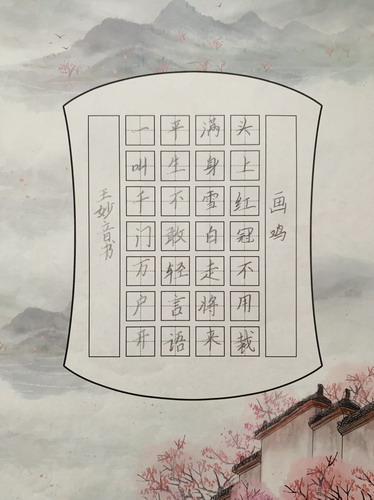 画鸡
头上红冠不用裁
满身雪白走将来
平生不敢轻言语
一叫千门万户开
王妙音书